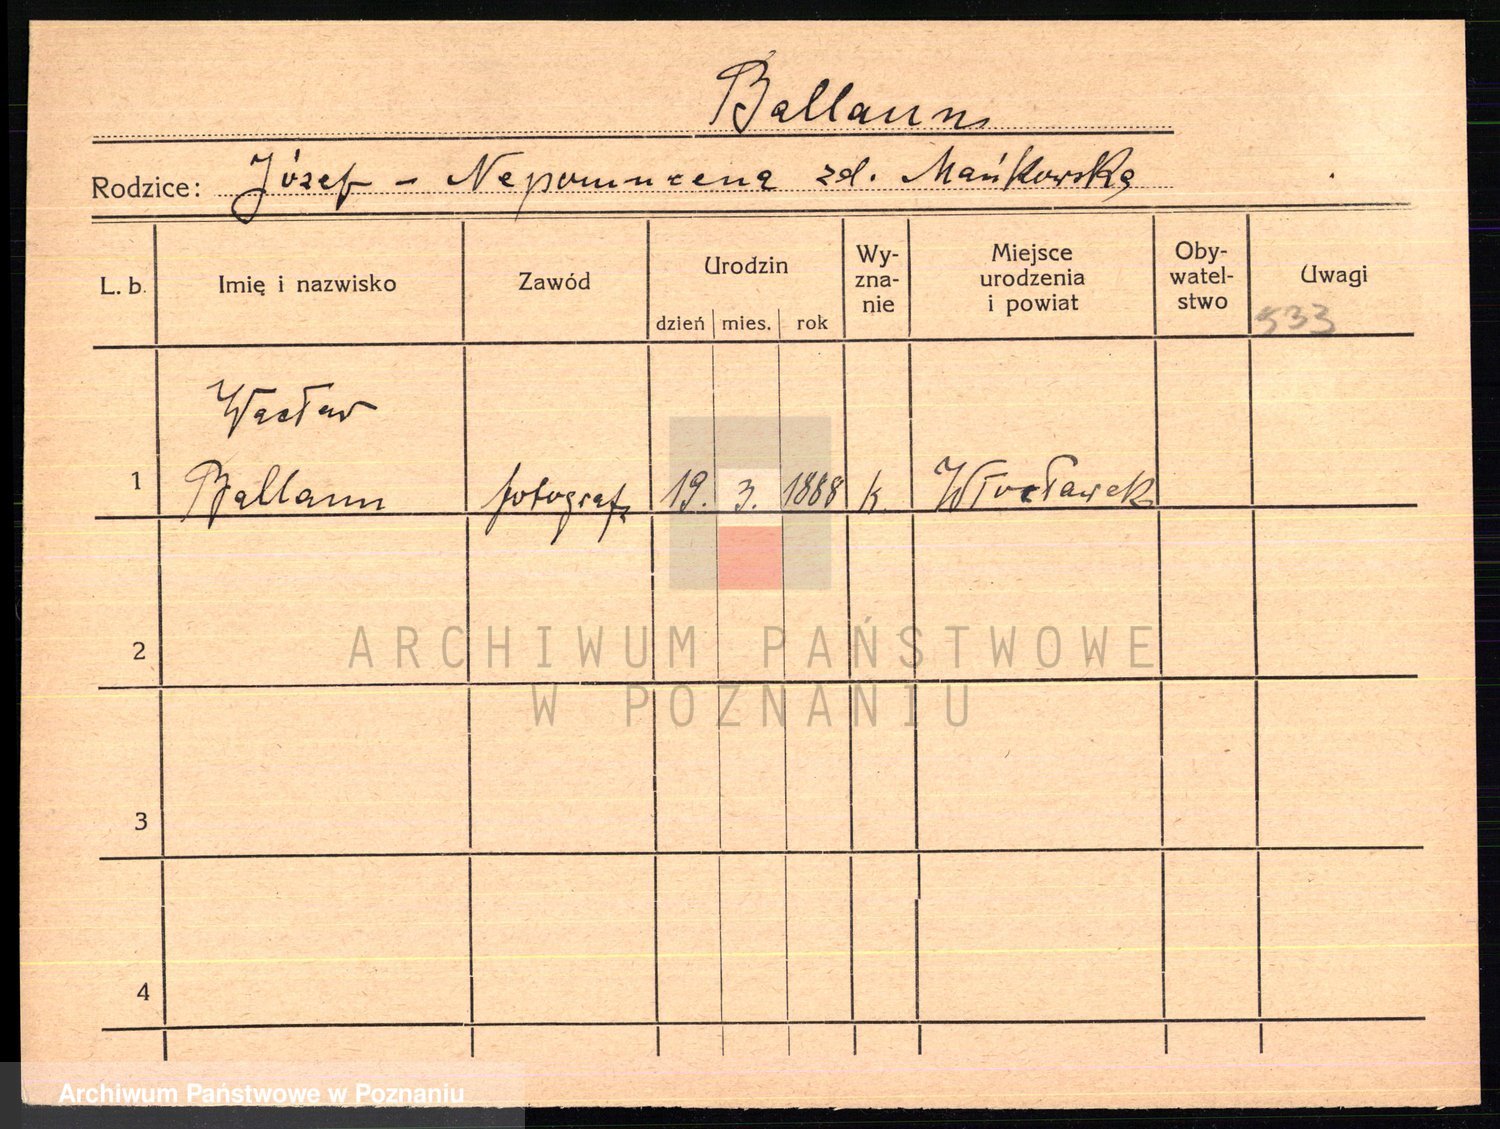 Ballaun
Rodzice: Józef – Nepomucena zd. Mańkowska
L. b. Imię i nazwisko Zawód Urodzin Wy-zna-nie Miejsce urodzenia i powiat Oby-watel-stwo Uwagi
dzień mies. rok
533
Wacław
1 Ballaun fotograf 19. 3. 1888 k. Włocławek
2
ARCHIWUM PAŃSTWOWE
W POZNANIU
3
4
Archiwum Państwowe w Poznaniu